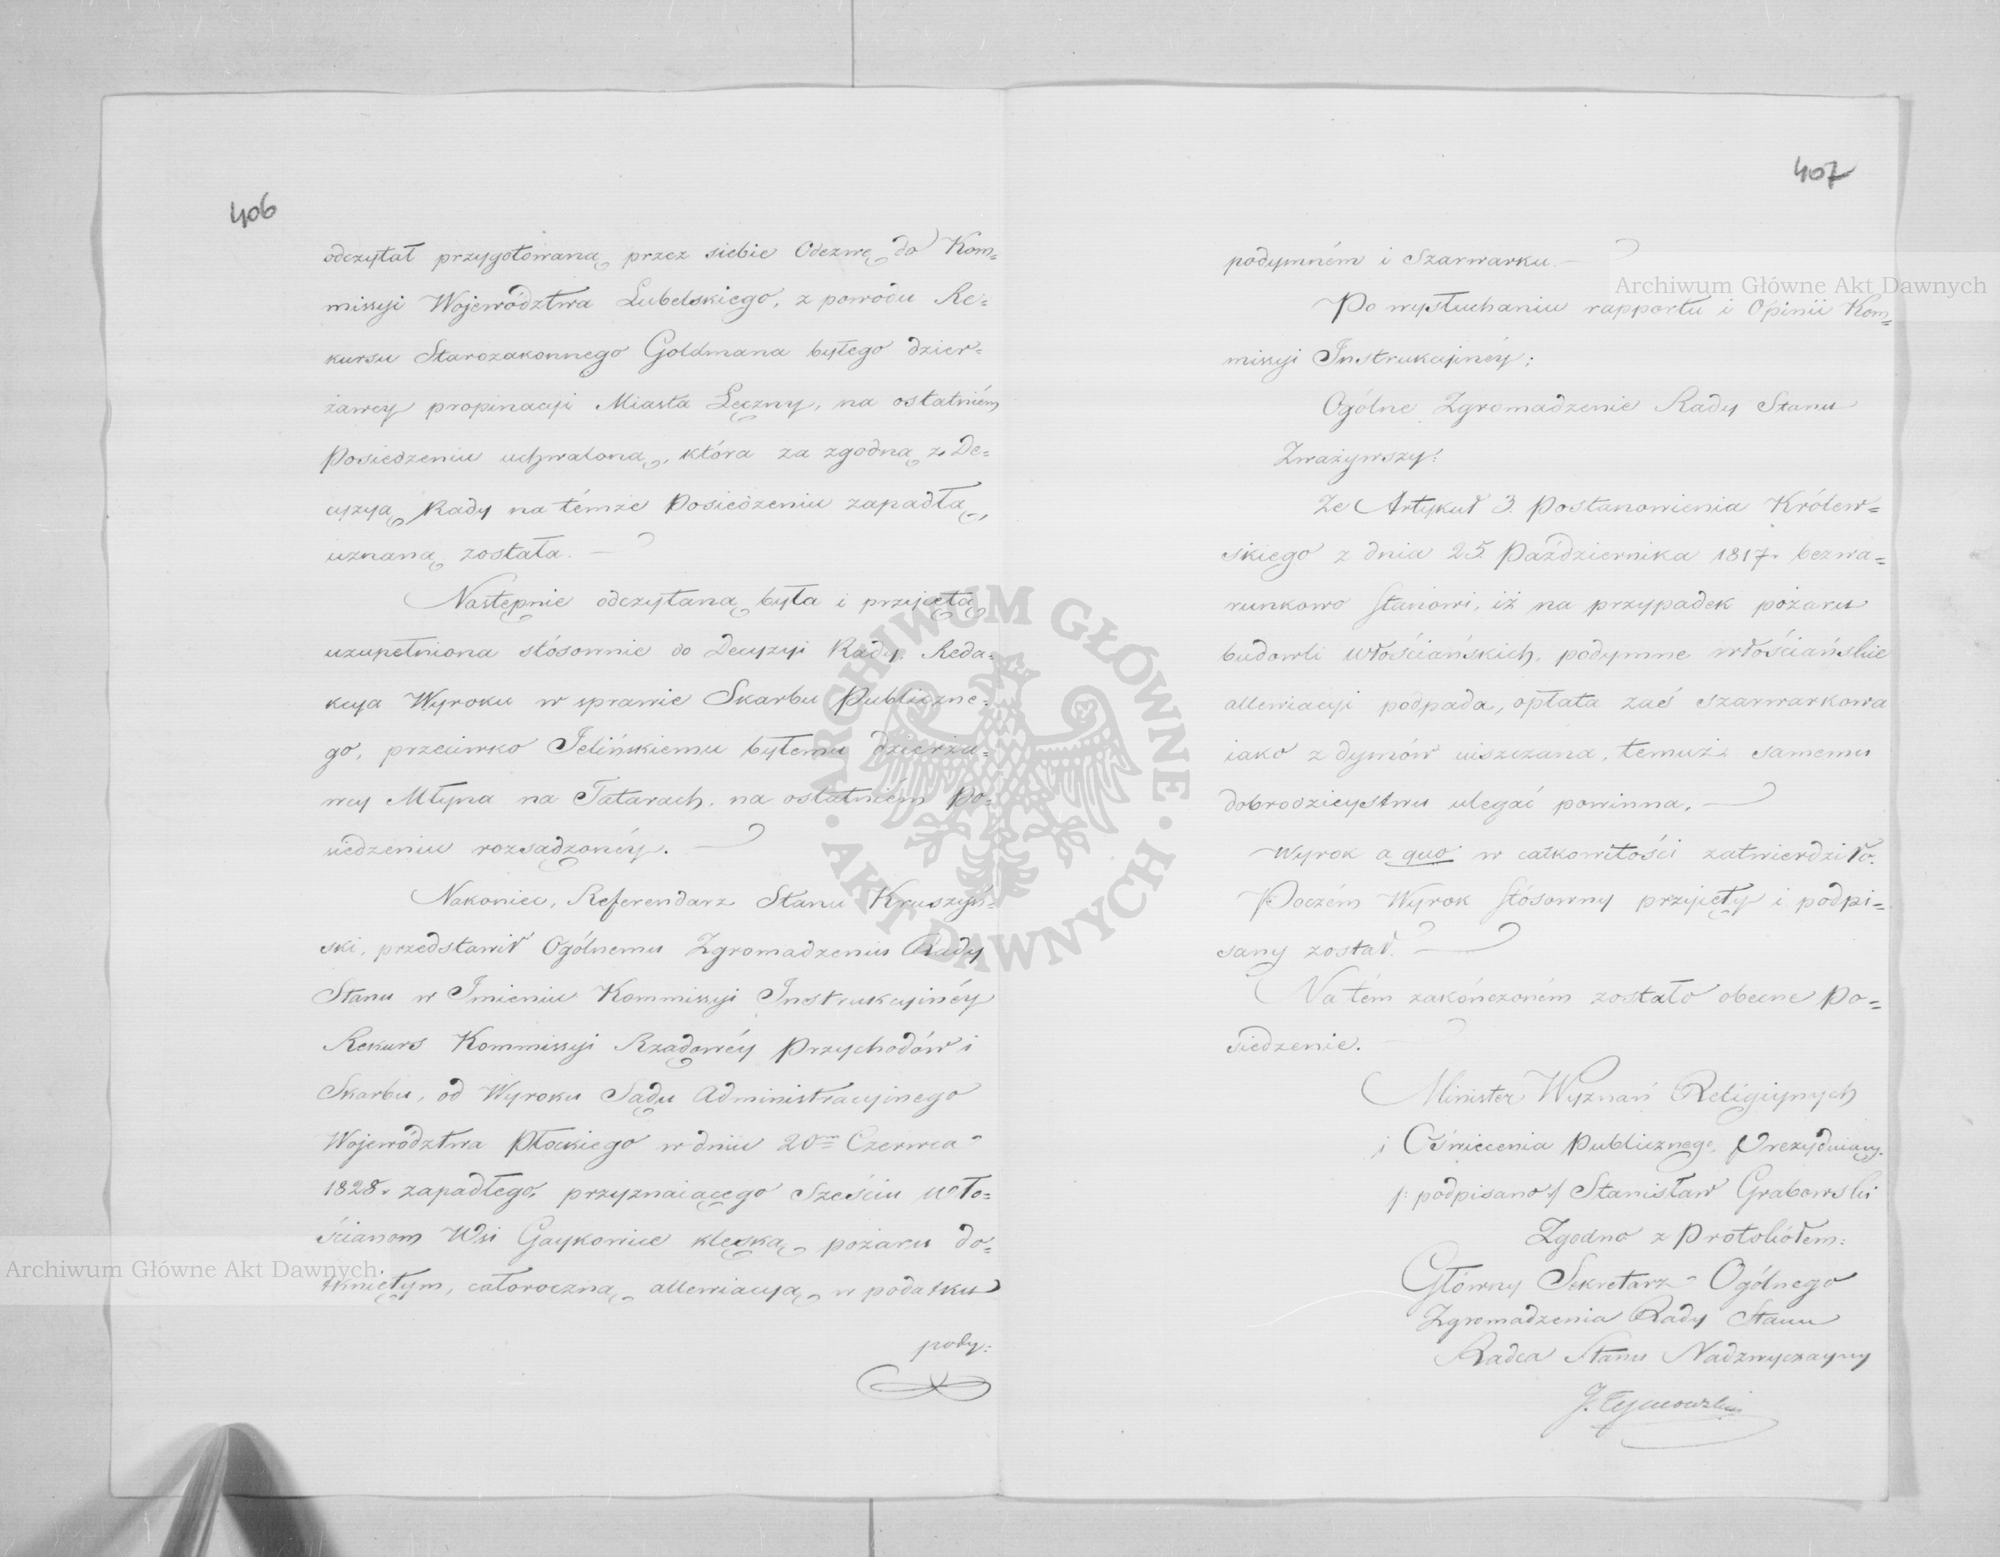 406
odczytał przygotowaną przez siebie Odezwę do Kom=
missyi Województwa Lubelskiego, z powodu Re=
kursu Starozakonnego Goldmana byłego dzier=
żawcy propinacyi Miasta Łęczny, na ostatniém
Posiedzeniu uchwaloną, która za zgodną z De=
cyzyą Rady na témże Posiedzeniu zapadłą,
uznaną została.
Następnie odczytaną była i przyiętą
uzupełniona stósownie do Decyzyi Rady, Reda=
kcya Wyroku w sprawie Skarbu Publiczne=
go, przeciwko Jelińskiemu byłemu dzierża=
wcy Młyna na Tatarach, na ostatniém Po=
siedzeniu rozsądzonéy.
Nakoniec, Referendarz Stanu Kruszyń=
ski, przedstawił Ogólnemu Zgromadzeniu Rady
Stanu w Imieniu Kommissyi Instrukcyinéy
Rekurs Kommissyi Rządowéy Przychodów i
Skarbu, od Wyroku Sądu Administracyinego
Województwa Płockiego w dniu 20 Czerwca
1828. zapadłego, przyznaiącego Sześciu wło=
ścianom Wsi Gaykowice klęską pożaru do=
tkniętym, całoroczną allewiacyą w podatku
pody:
407
podymném i Szarwarku.
Po wysłuchaniu rapportu i Opinii Kom=
missyi Instrukcyinéy;
Ogólne Zgromadzenie Rady Stanu
Zważywszy:
Ze Artykuł 3. Postanowienia Królew=
skiego z dnia 25. Października 1817. bezwa=
runkowo stanowi, iż na przypadek pożaru
budowli włościańskich, podymne włościańskie
allewiacyi podpada, opłata zaś szarwarkowa
iako z dymów uiszczana, temuż samemu
dobrodzieystwu ulegać powinna,
Wyrok a quo w całkowitości zatwierdziło.
Poczém Wyrok stósowny przyięty i podpi=
sany został.
Na tém zakończoném zostało obecne Po=
siedzenie.
Minister Wyznań Religiynych
i Oświecenia Publicznego, Prezyduiący.
/: podpisano :/ Stanisław Grabowski
Zgodno z Protokółem:
Główny Sekretarz Ogólnego
Zgromadzenia Rady Stanu
Radca Stanu Nadzwyczayny
J. Tymowski
Archiwum Główne Akt Dawnych
Archiwum Główne Akt Dawnych
ARCHIWUM GŁÓWNE · AKT DAWNYCH ·